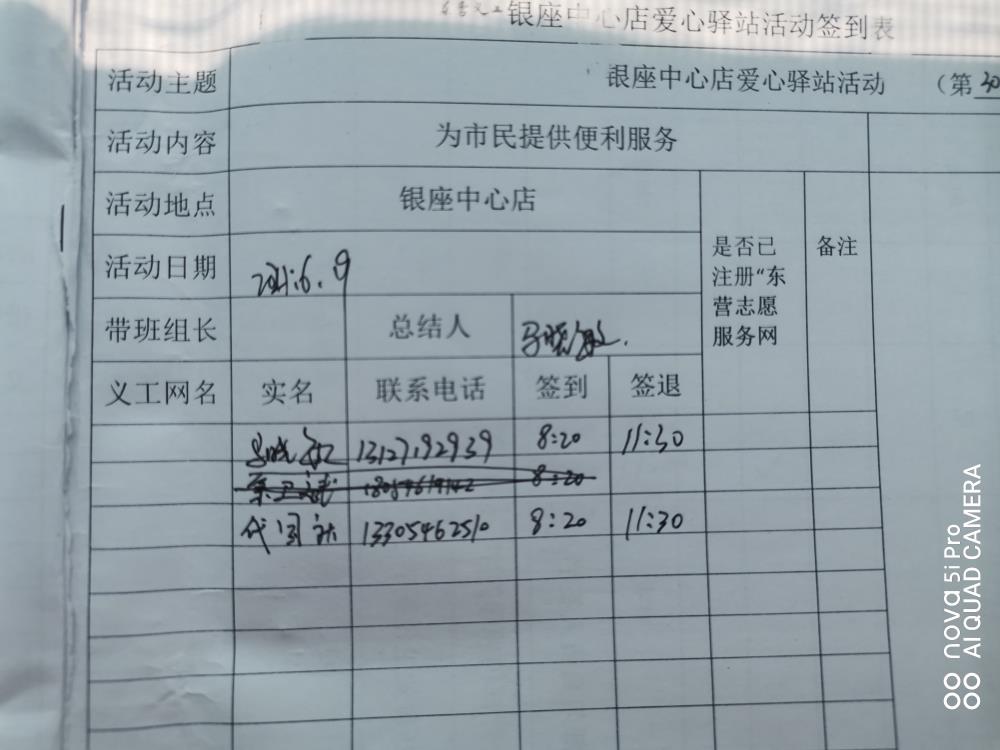 银座中心店爱心驿站活动签到表
活动主题 银座中心店爱心驿站活动 (第30
活动内容 为市民提供便利服务
活动地点 银座中心店 是否已注册“东营志愿服务网 备注
活动日期 2021.6.9
带班组长 总结人 马晓敏.
义工网名 实名 联系电话 签到 签退
马晓敏 13127192939 8:20 11:30
8:20
代 13305462510 8:20 11:30
nova 5i Pro
AI QUAD CAMERA